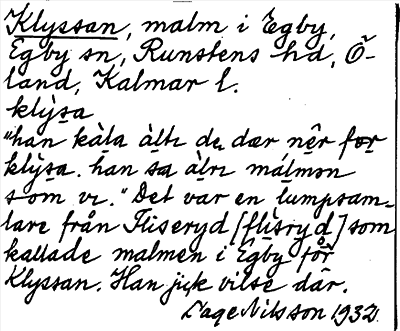 Klyssan, malm i Egby,
Egby sn, Runstens hd, Ö-
land, Kalmar l.
klỳsa
"han kàla àltı dɛ dær nê̱r fo̱r
klỳsa. han sa àlrı málmən
som vı." Det var en lumpsam-
lare från Fliseryd [flìsryd] som
kallade malmen i Egby för
Klyssan. Han jick vilse där.
Lage Nilsson 1932.